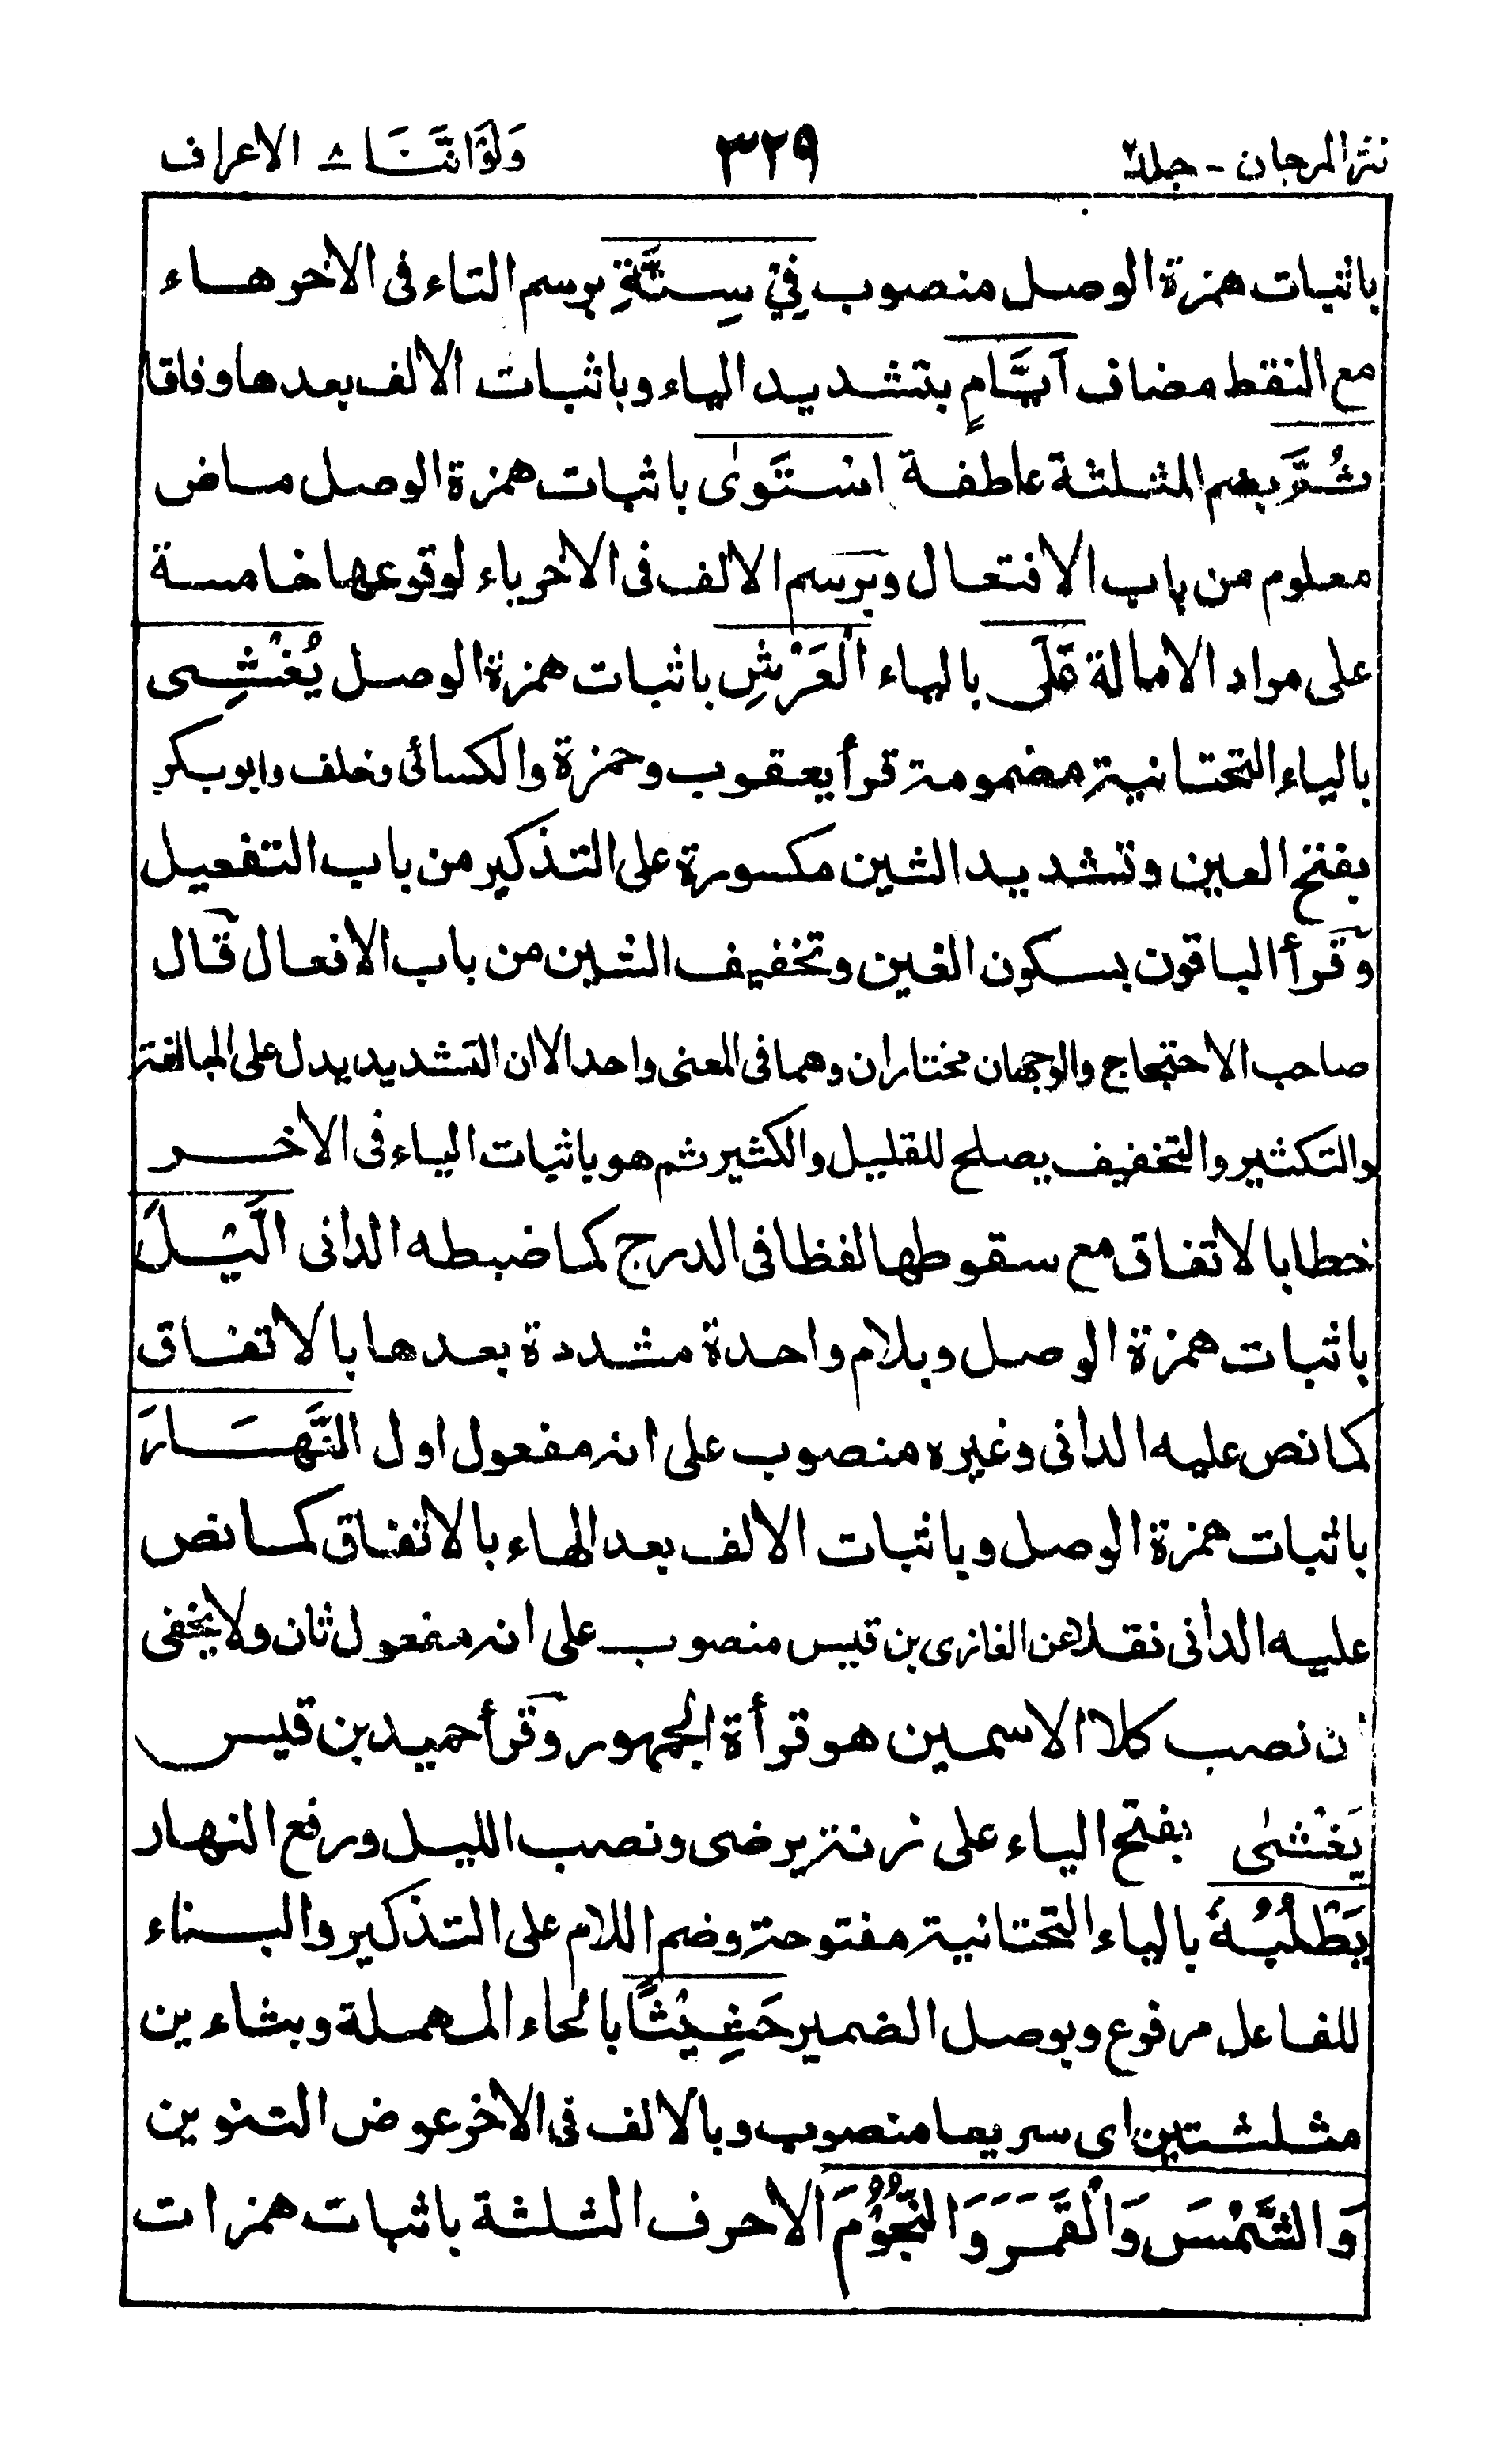 نثر المرجان - جلد٢ ٣٢٩ وَلَوْ اَنَّنَا ٨ الاعراف
باثبات همزة الوصل منصوب فِيْ سِتَّةِ برسم التاء فى الاخر هاء
مع النقط مضاف اَيَّامٍ بتشديد الياء وباثبات الالف بعدها وفاقا
ثُمَّ بضم المثلثة عاطفة اسْتَوٰى باثبات همزة الوصل ماض
معلوم من باب الافتعال وبرسم الالف فى الاخر ياء لوقوعها خامسة
على مراد الامالة عَلَى بالياء الْعَرْشِ باثبات همزة الوصل يُغْشِى
بالياء التحتانية مضمومة قرأ يعقوب وحمزة والكسائى وخلف وابوبكر
بفتح العين وتشديد الشين مكسورة على التذكير من باب التفعيل
وقرأ الباقون بسكون الغين وتخفيف الشين من باب الافعال قال
صاحب الاحتجاج والوجهان مختاران وهما فى المعنى واحد الا ان التشديد يدل على المبالغة
والتكثير والتخفيف يصلح للقليل والكثير ثم هو باثبات الياء فى الاخر
خطا بالاتفاق مع سقوطها لفظا فى الدرج كما ضبطه الدانى الَّيْلَ
باثبات همزة الوصل وبلام واحدة مشددة بعدها بالاتفاق
كما نص عليه الدانى وغيره منصوب على انه مفعول اول النَّهَارَ
باثبات همزة الوصل وباثبات الالف بعد الهاء بالاتفاق كما نص
عليه الدانى نقلا عن الغازى بن قيس منصوب على انه مفعول ثان ولا يخفى
ان نصب كلا الاسمين هو قرأة الجمهور وقرأ حميد بن قيس
يَغْشٰى بفتح الياء على زنة يرضى ونصب الليل ورفع النهار
يَطْلُبُهٗ بالياء التحتانية مفتوحة وضم اللام على التذكير والبناء
للفاعل مرفوع وبوصل الضمير حَثِيْثًا بالحاء المهملة وبثاءين
مثلثتين اى سريعا منصوب وبالالف فى الاخر عوض التنوين
وَالشَّمْسَ وَالْقَمَرَ وَالنُّجُوْمَ الاحرف الثلثة باثبات همزات